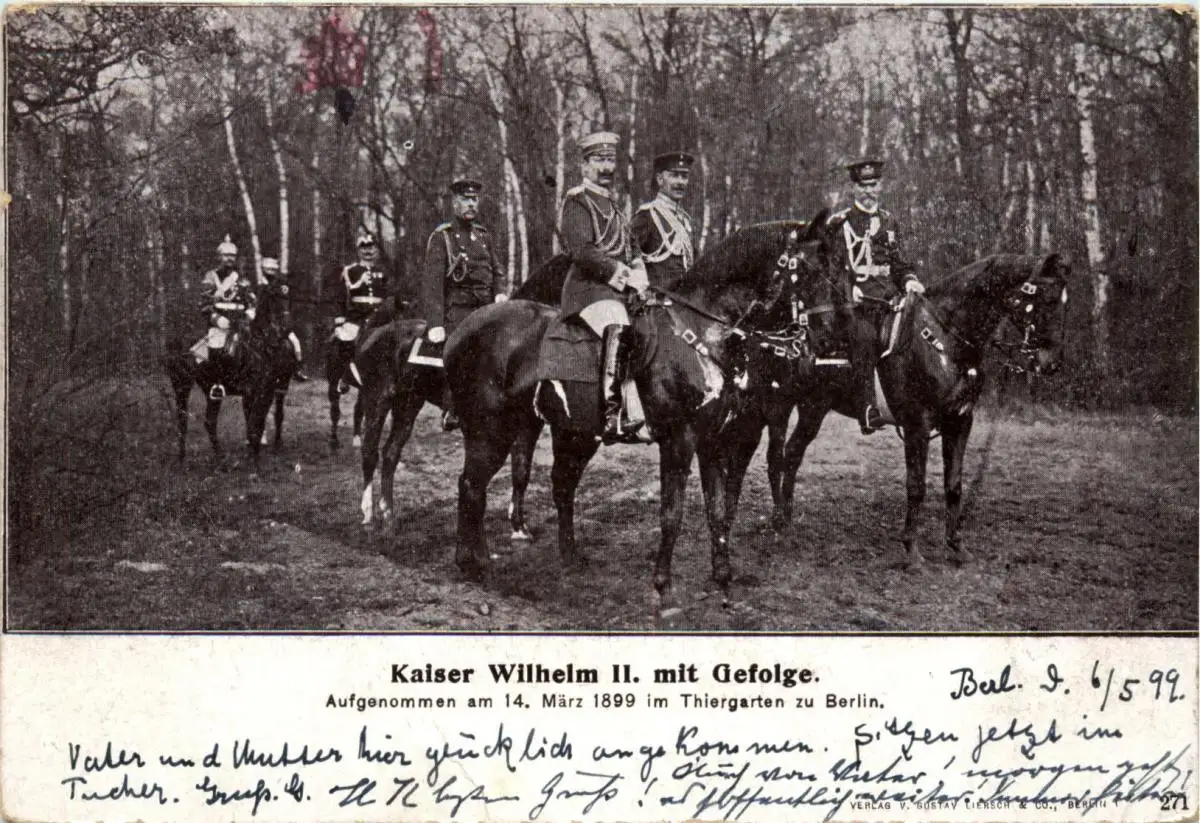 Kaiser Wilhelm II. mit Gefolge.
Aufgenommen am 14. März 1899 im Thiergarten zu Berlin.
Berl. d. 6/5 99.
Vater und Mutter hier glücklich angekommen. Sitzen jetzt im
Tucher. Gruß. G. Gruß! Auch von Vater! morgen geht
VERLAG V. GUSTAV LIERSCH & CO., BERLIN
271